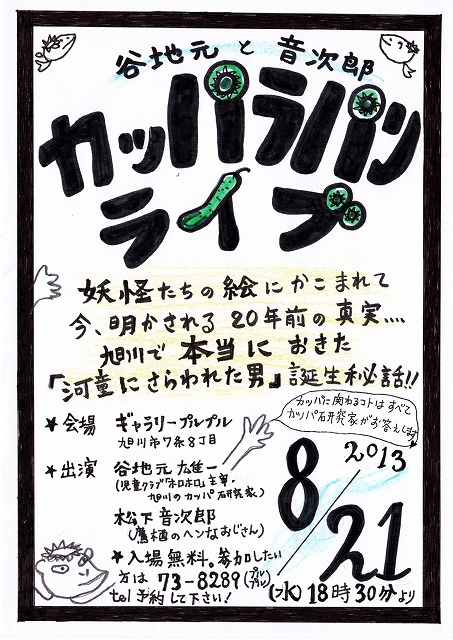 谷地元と音次郎
カッパラパン
ライブ
妖怪たちの絵にかこまれて
今、明かされる20年前の真実....
旭川で本当におきた
「河童にさらわれた男」誕生秘話!!
カッパに関わるコトはすべて
カッパ研究家がお答えします
★会場 ギャラリープルプル
旭川市7条8丁目
★出演 谷地元雄一
(児童クラブ「ホロホロ」主宰・
旭川のカッパ研究家)
松下音次郎
(鷹栖のヘンなおじさん)
★入場無料。参加したい
方は 73-8289(プルプル)
tel予約して下さい!
2013
8/21
(水)18時30分より